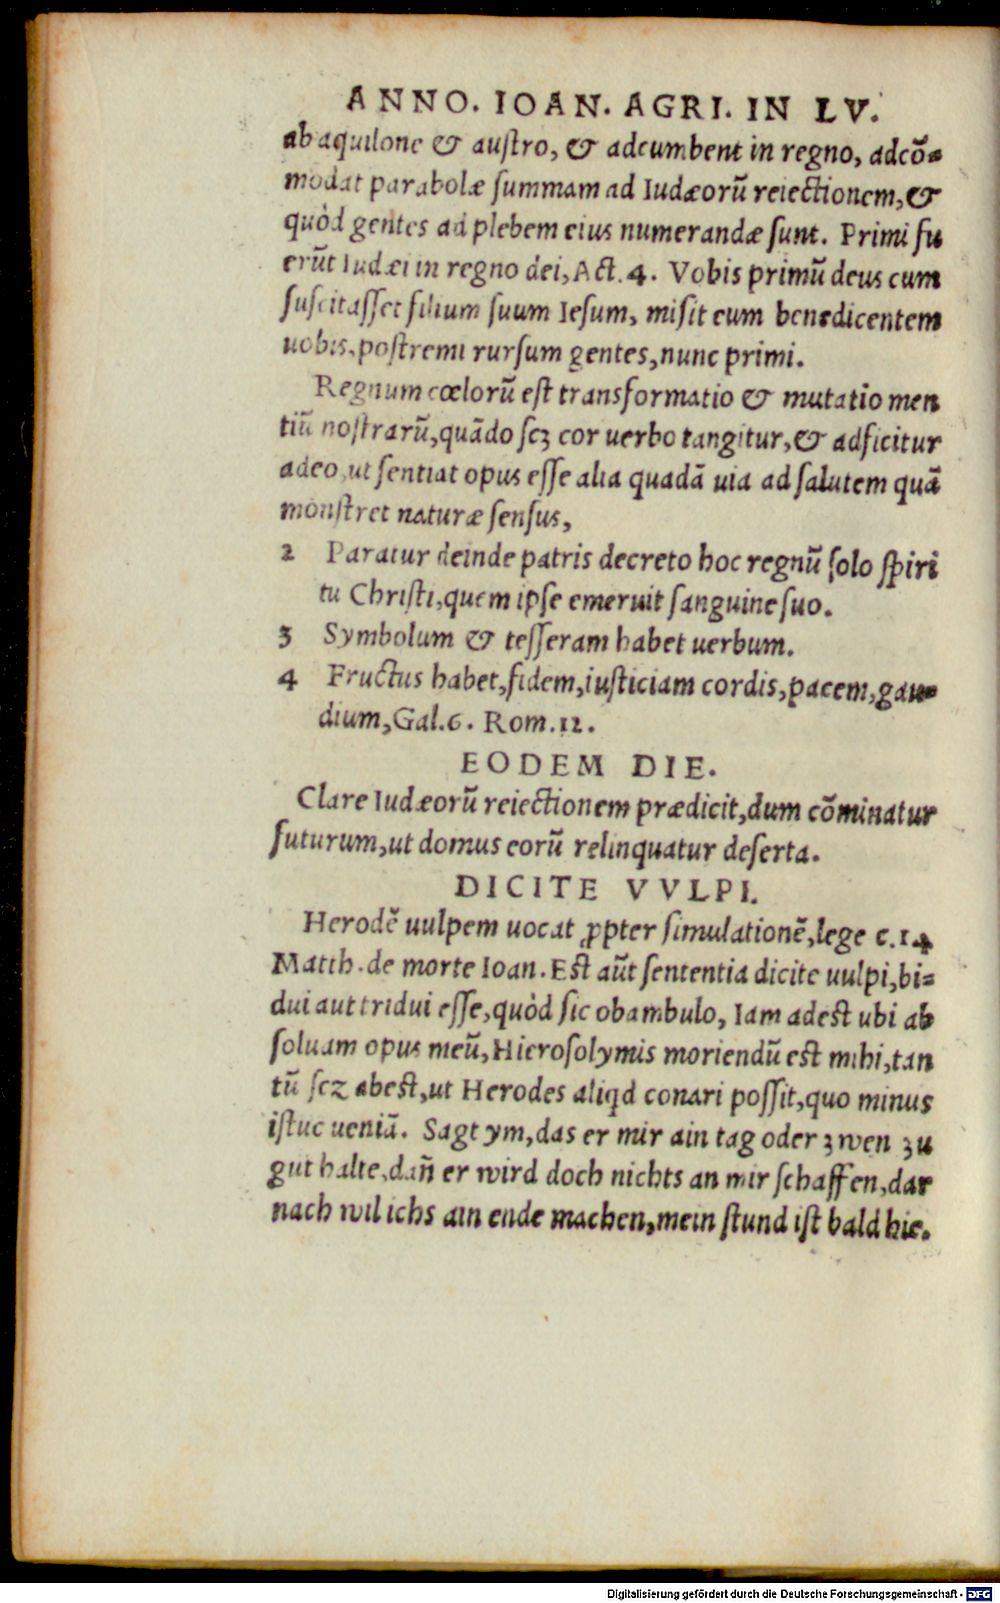 ANNO. IOAN. AGRI. IN LV.
ab aquilone & auſtro, & adcumbent in regno, adcō-
modat parabolæ ſummam ad Iudæorū reiectionem, &
quòd gentes ad plebem eius numerandæ ſunt. Primi fu
erūt Iudæi in regno dei, Act. 4. Vobis primū deus cum
ſuſcitaſſet filium ſuum Ieſum, miſit eum benedicentem
uobis, poſtremi rurſum gentes, nunc primi.
Regnum cœlorū eſt transformatio & mutatio men
tiū noſtrarū, quādo ſcꝫ cor uerbo tangitur, & adficitur
adeo, ut ſentiat opus eſſe alia quadā uia ad ſalutem quā
monſtret naturæ ſenſus,
2 Paratur deinde patris decreto hoc regnū ſolo ſpiri
tu Chriſti, quem ipſe emeruit ſanguine ſuo.
3 Symbolum & teſſeram habet uerbum.
4 Fructus habet, fidem, iuſticiam cordis, pacem, gau-
dium, Gal. 6. Rom. 12.
EODEM DIE.
Clare Iudæorū reiectionem prædicit, dum cōminatur
futurum, ut domus eorū relinquatur deſerta.
DICITE VVLPI.
Herodē uulpem uocat ꝓpter ſimulationē, lege c. 14
Matth. de morte Ioan. Eſt aūt ſententia dicite uulpi, bi-
dui aut tridui eſſe, quòd ſic obambulo, Iam adeſt ubi ab
ſoluam opus meū, Hieroſolymis moriendū eſt mihi, tan
tū ſcꝫ abeſt, ut Herodes aliqd conari poſſit, quo minus
iſtuc ueniā. Sagt ym, das er mir ain tag oder zwen zu
gut halte, dañ er wird doch nichts an mir ſchaffen, dar
nach wil ichs ain ende machen, mein ſtund iſt bald hie.
Digitalisierung gefördert durch die Deutsche Forschungsgemeinschaft - DFG